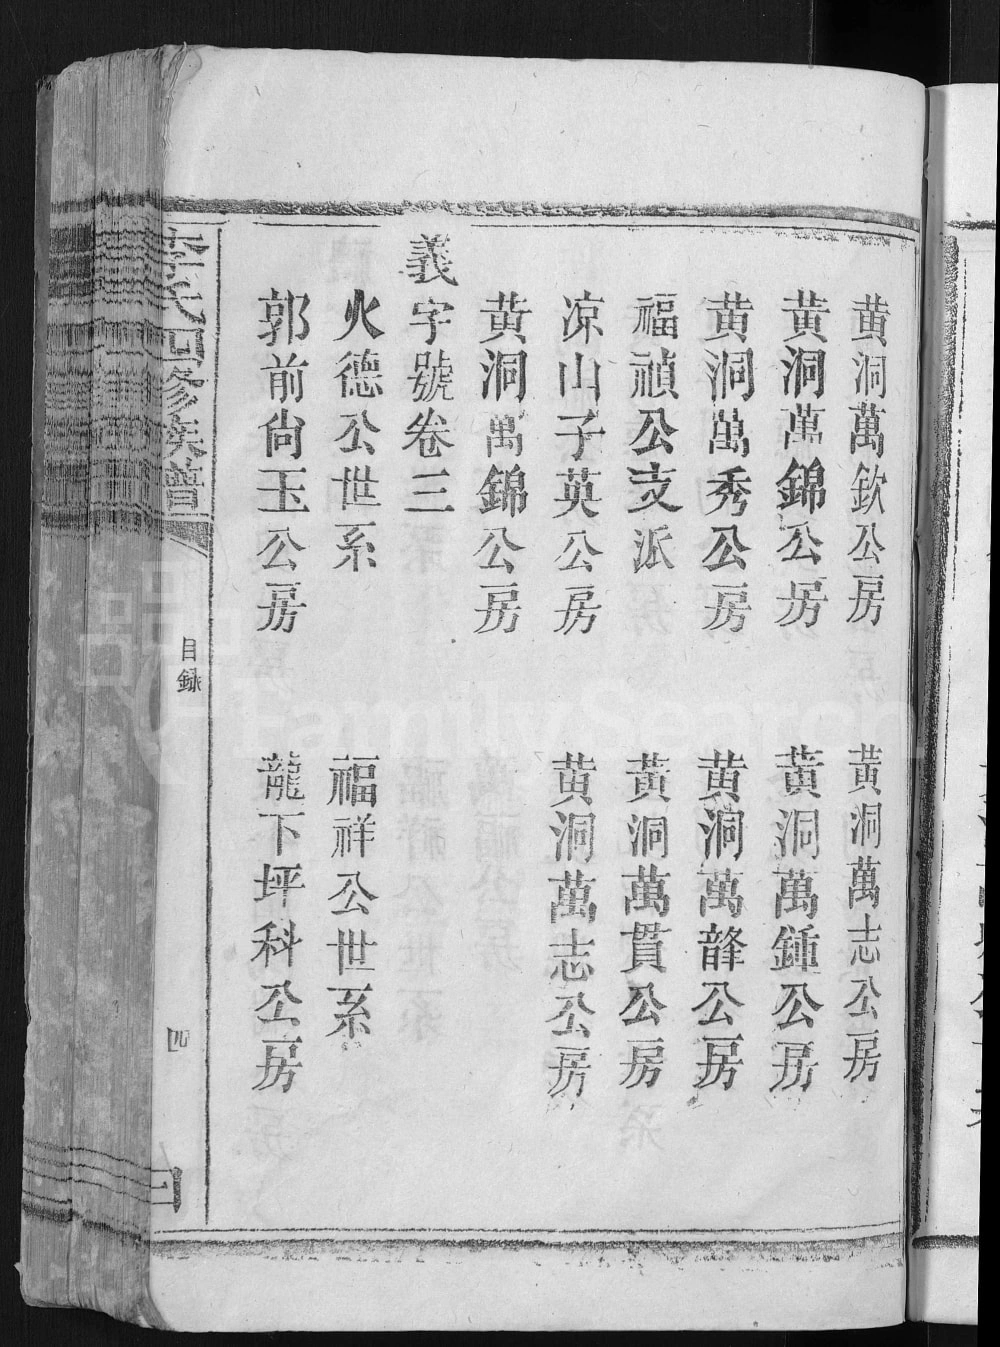 黄洞萬欽公房
黄洞萬志公房
黄洞萬錦公房
黄洞萬鍾公房
黄洞萬秀公房
黄洞萬夆公房
福禎公支派
黄洞萬貫公房
凉山子英公房
黄洞萬志公房
黄洞萬錦公房
義字號卷三
火德公世系
福祥公世系
郭前尙玉公房
龍下坪科公房
李氏四修族譜
目録
四
FamilySearch